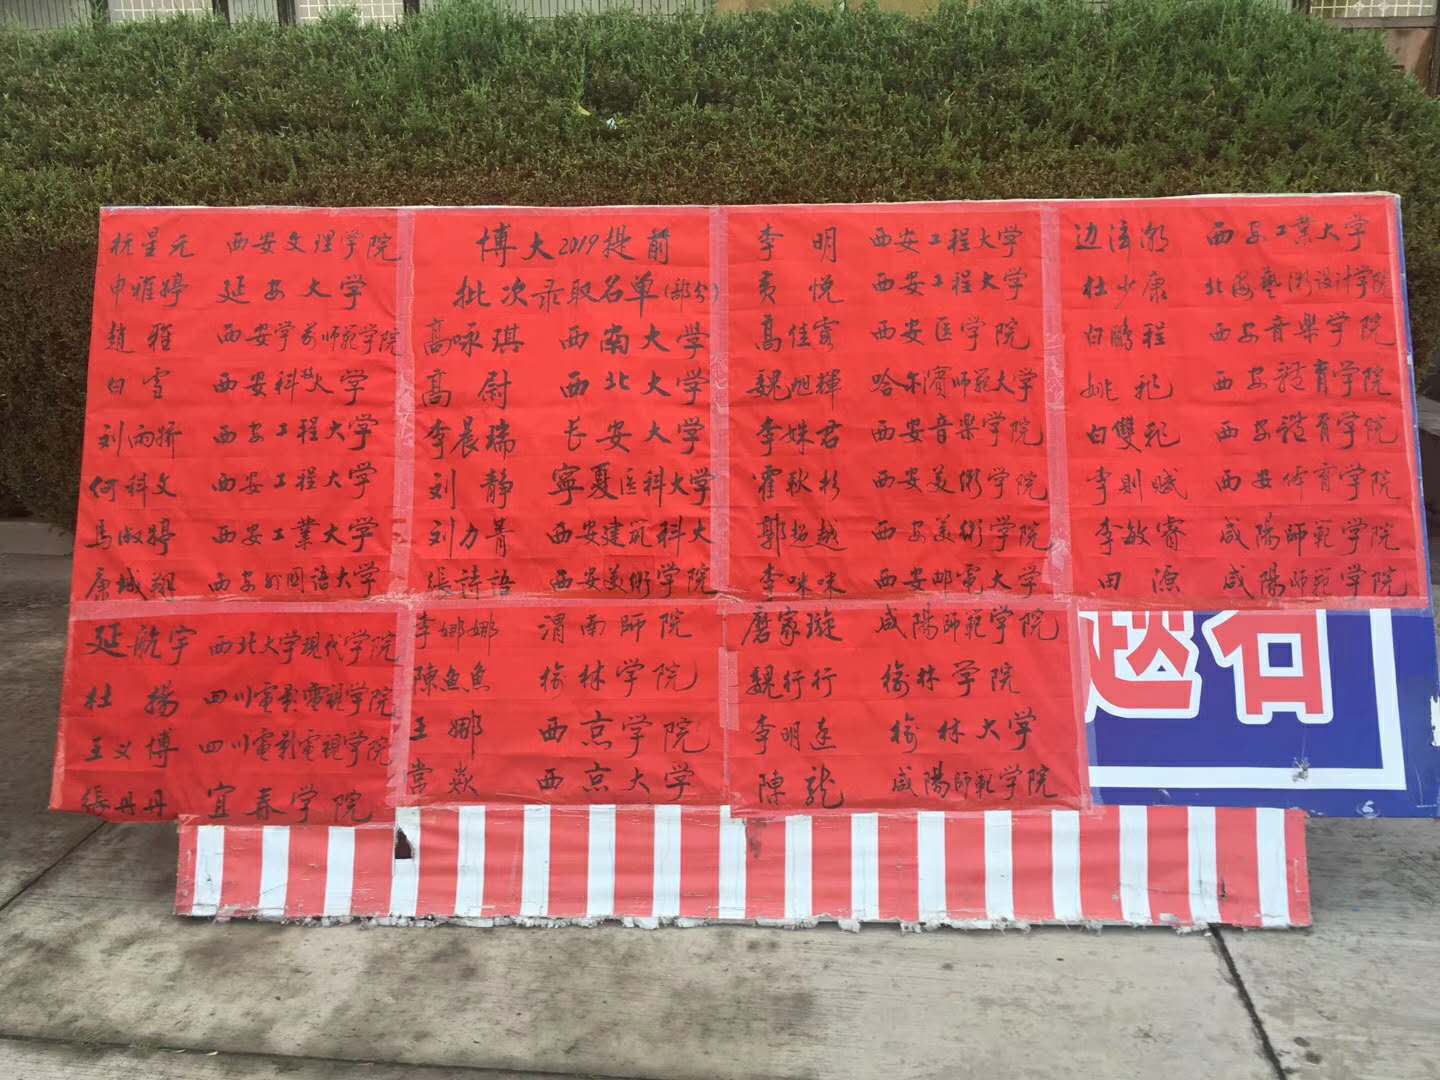 杭星元 西安文理学院
申雅婷 延安大学
趙雅 西安学前师范学院
白雪 西安科技大学
刘雨娇 西安工程大学
何科文 西安工程大学
馬淑婷 西安工業大学
康城翔 西安外国语大学
延航宇 西北大学现代学院
杜揚 四川電影電視学院
王义博 四川電影電視学院
張丹丹 宜春学院
博大2019提前
批次录取名单(部分)
高咏琪 西南大学
高尉 西北大学
李晨瑞 长安大学
刘静 寧夏医科大学
刘力菁 西安建筑科大
張诗語 西安美術学院
李娜娜 渭南師院
陳魚魚 榆林学院
王娜 西京学院
常燚 西京大学
李明 西安工程大学
黄悦 西安工程大学
高佳霄 西安医学院
魏旭輝 哈尔濱师范大学
李姝君 西安音樂学院
霍秋杉 西安美術学院
郭超越 西安美術学院
李咪咪 西安邮電大学
磨家璇 咸陽師範学院
魏行行 榆林学院
李明遠 榆林大学
陳龙 咸陽師範学院
边 西安工業大学
杜少康 北海藝術设计学院
白鹏程 西安音樂学院
姚 西安體育学院
白雙 西安體育学院
李則赋 西安体育学院
李敏睿 咸陽師範学院
田源 咸陽師範学院